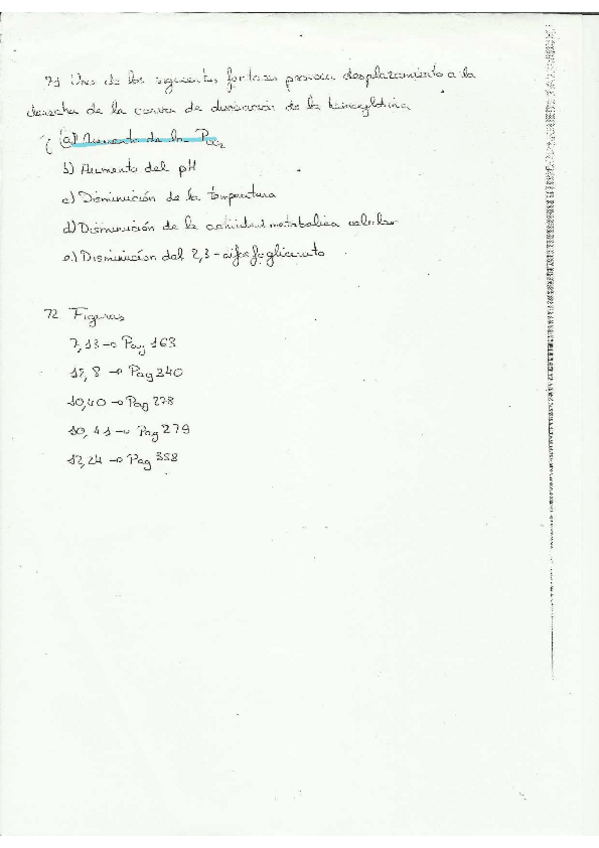 71 Uno de los siguientes factores provoca desplazamiento a la
derecha de la curva de disociación de la hemoglobina
a) Aumento de la P
b) Aumento del pH
c) Disminución de la temperatura
d) Disminución de la actividad metabolica celular
e) Disminucion del 2,3-difosfoglicerato
72 Figuras
7,13 → Pag 163
→ Pag 240
10,40 → Pag 278
10,41 → Pag 279
12,24 → Pag 358